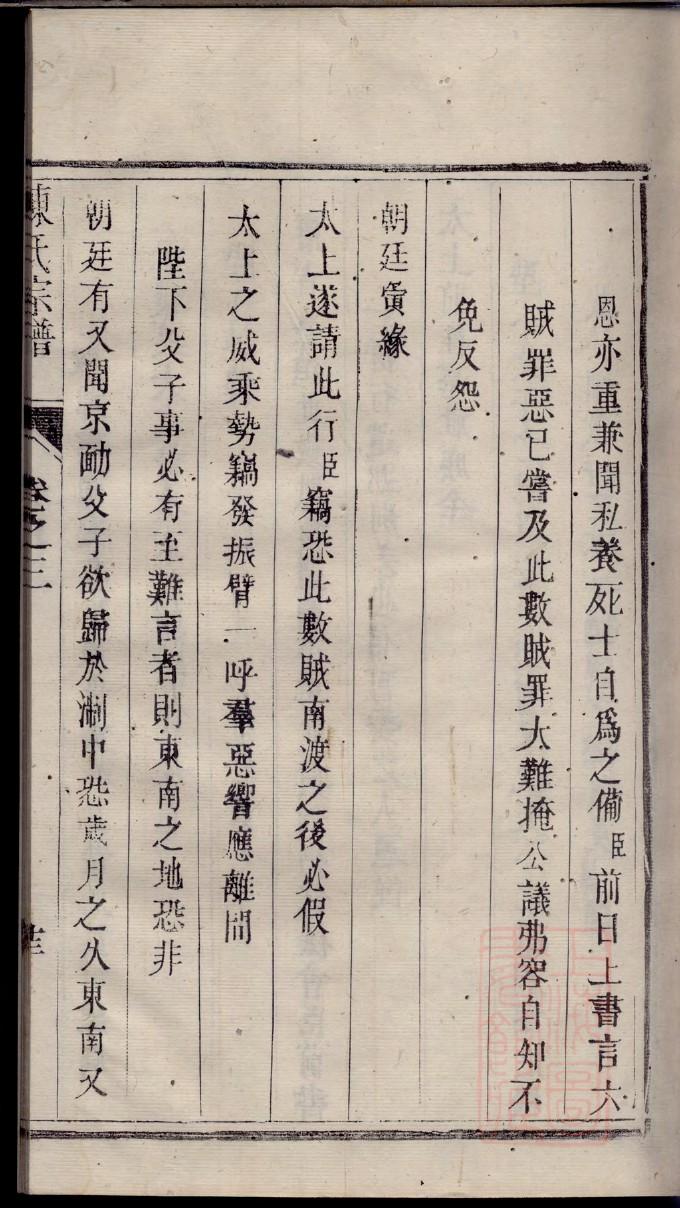 恩亦重兼聞私養死士自爲之備臣前日上書言六
賊罪惡已嘗及此數賊罪大難掩公議弗容自知不
免反怨
朝廷夤緣
太上遂請此行臣竊恐此數賊南渡之後必假
太上之威乘勢竊發振臂一呼羣惡響應離間
陛下父子事必有至難言者則東南之地恐非
朝廷有又聞京勔父子欲歸於淛中恐歲月之久東南又
陳氏宗譜
卷之三